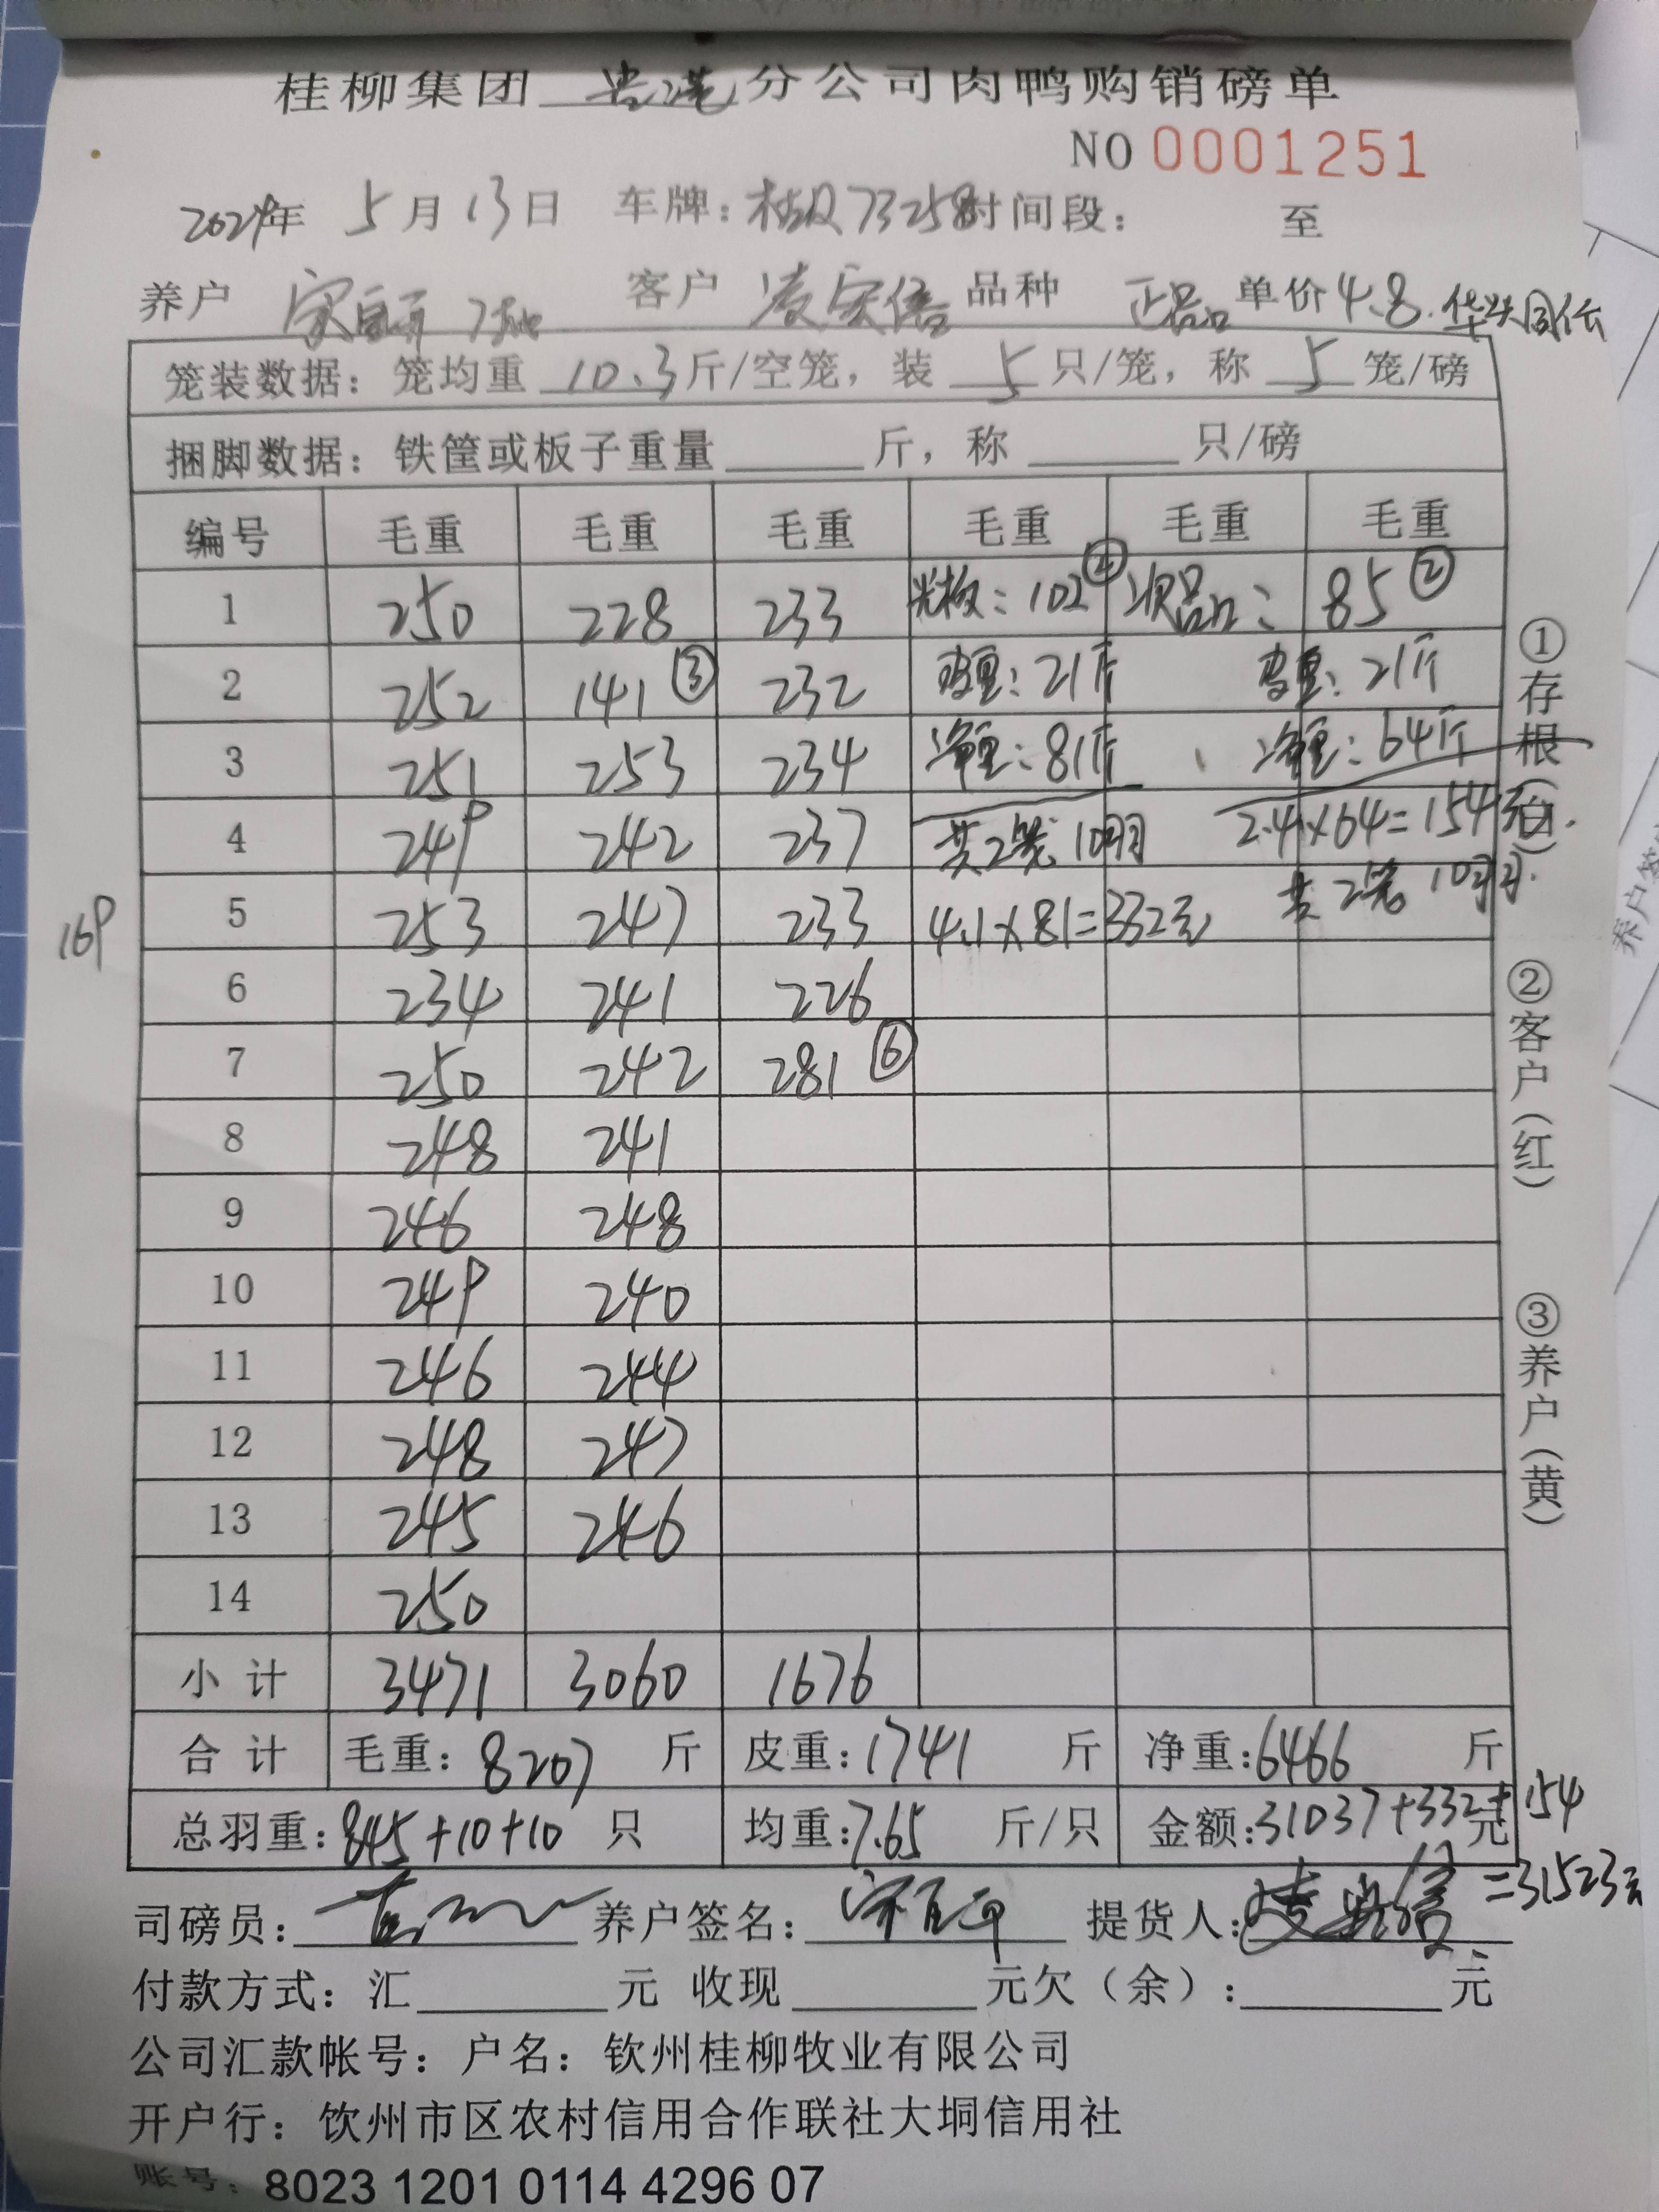 桂柳集团 贵港 分公司肉鸭购销磅单
NO 0001251
2024年 5月13日 车牌: 73258 时间段: 至
养户 客户 品种 正品 单价 4.8.
笼装数据: 笼均重 10.3 斤/空笼, 装 5 只/笼, 称 5 笼/磅
捆脚数据: 铁筐或板子重量 斤, 称 只/磅
编号 毛重 毛重 毛重 毛重 毛重 毛重
1 250 228 233 光板: 102② 次品: 85②
2 252 141③ 232 皮重: 21斤 皮重: 21斤
3 251 253 234 净重: 81斤 净重: 64斤
4 249 242 237 共2笼 10羽 2.4×64=154元.
5 253 247 233 4.1×81=332元 共2笼 10羽.
169
6 234 241 226
7 250 242 281⑥
8 248 241
9 246 248
10 249 240
11 246 244
12 248 247
13 245 246
14 250
小计 3471 3060 1676
合计 毛重: 8207 斤 皮重: 1741 斤 净重: 6466 斤
总羽重: 845+10+10 只 均重: 7.65 斤/只 金额: 31037+332+154 元
=31523元
司磅员: 养户签名: 提货人:
付款方式: 汇 元 收现 元欠(余): 元
公司汇款帐号: 户名: 钦州桂柳牧业有限公司
开户行: 钦州市区农村信用合作联社大垌信用社
账号: 8023 1201 0114 4296 07
①存根(白)
②客户(红)
③养户(黄)
养户签